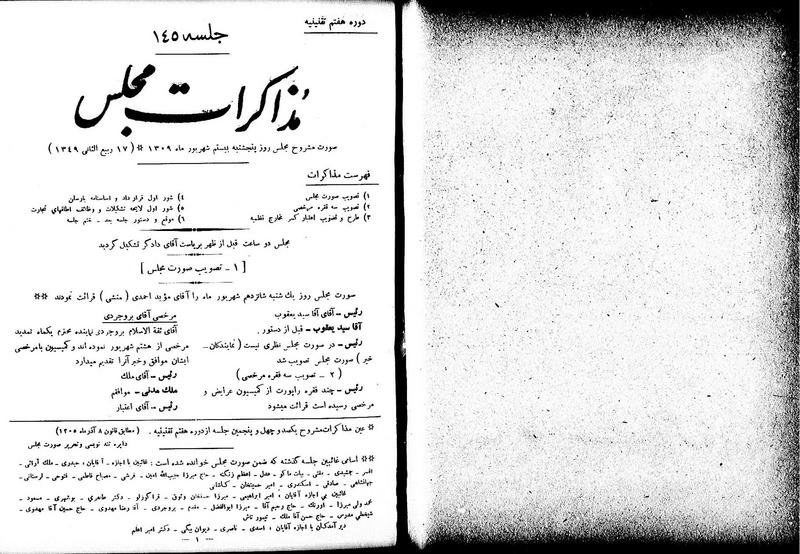 دوره هفتم تقنینیه
جلسه ۱۴۵
مذاکرات مجلس
صورت مشروح مجلس روز پنجشنبه بیستم شهریور ماه ۱۳۰۹ * (۱۷ ربیع الثانی ۱۳۴۹)
فهرست مذاکرات
۱) تصویب صورت مجلس
۲) تصویب سه فقره مرخصی
۳) طرح و تصویب اعتبار کسر مخارج نظمیه
۴) شور اول قرارداد و اساسنامه پارسان
۵) شور اول لایحه تشکیلات و وظائف اطاقهای تجارت
۶) موقع و دستور جلسه بعد - ختم جلسه
مجلس دو ساعت قبل از ظهر بریاست آقای دادگر تشکیل گردید
[ ۱ - تصویب صورت مجلس ]
صورت مجلس روز یك شنبه شانزدهم شهریور ماه را آقای مؤید احمدی (منشی) قرائت نمودند **
رئیس - آقای آقا سید یعقوب
آقا سید یعقوب - قبل از دستور .
رئیس - در صورت مجلس نظری نیست (نمایندگان -
خیر) صورت مجلس تصویب شد
(۲ - تصویب سه فقره مرخصی)
رئیس - چند فقره راپورت از کمیسیون عرایض و
مرخصی رسیده است قرائت میشود
مرخصی آقای بروجردی
آقای ثقة الاسلام بروجردی نماینده محترم یکماه تمدید
مرخصی از هشتم شهریور نموده اند و کمیسیون با مرخصی
ایشان موافق و خبر آنرا تقدیم میدارد
رئیس - آقای ملك
ملك مدنی - موافقم
رئیس - آقای اعتبار
* عین مذاکرات مشروح یکصد و چهل و پنجمین جلسه از دوره هفتم تقنینیه . (مطابق قانون ۸ آذر ماه ۱۳۰۵)
دایره تند نویسی و تحریر صورت مجلس
** اسامی غائبین جلسه گذشته که ضمن صورت مجلس خوانده شده است : غائبین با اجازه - آقایان ، حیدری - ملك آرائی -
افسر - جمشیدی - مفتی - بیات ماکو - عدل - اعظم زنگنه - حاج میرزا حبیب الله امین - فرشی - مصباح فاطمی - فتوحی - لرستانی -
جهانشاهی - صادقی - اسکندری - امیر حسینخان - کاشانی
غائبین بی اجازه آقایان ، امیر ابراهیمی - میرزا حسنخان وثوق - قراگوزلو - دکتر طاهری - بوشهری - مسعود -
محمد ولی میرزا - اورنگ - حاج رحیم آقا - میرزا ابوالفضل - مقدم - بروجردی - آقا رضا مهدوی - حاج حسین آقا مهدوی -
شیخعلی مدرس - حاج حسن آقا ملك - تیمور تاش
دیر آمدگان با اجازه آقایان ، اسدی - ناصری - دیوان بیگی - دکتر امیر اعلم
- ۱ -